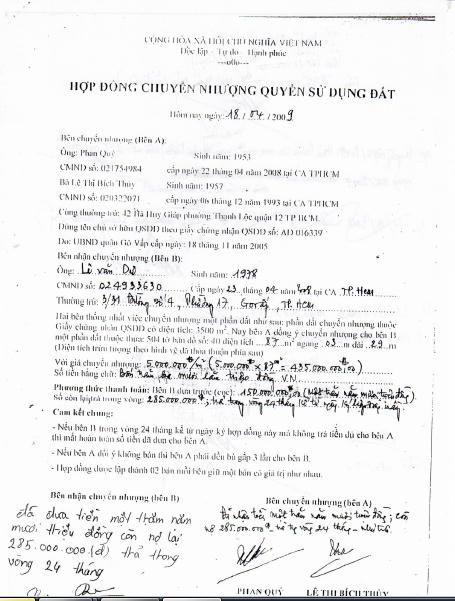 CỘNG HÒA XÃ HỘI CHỦ NGHĨA VIỆT NAM
Độc lập - Tự do - Hạnh phúc
---o0o---
HỢP ĐỒNG CHUYỂN NHƯỢNG QUYỀN SỬ DỤNG ĐẤT
Hôm nay ngày: 18 / 04 / 2009
Bên chuyển nhượng (Bên A):
Ông: Phan Quý Sinh năm: 1953
CMND số: 021754984 cấp ngày 22 tháng 04 năm 2008 tại CA TPHCM
Bà Lê Thị Bích Thủy Sinh năm: 1957
CMND số: 020322071 cấp ngày 06 tháng 12 năm 1993 tại CA TPHCM
Cùng thường trú: 42 Hà Huy Giáp phường Thạnh Lộc quận 12 TP HCM.
Đứng tên chủ sở hữu QSDĐ theo giấy chứng nhận QSDĐ số: AD 016339
Do: UBND quận Gò Vấp cấp ngày: 18 tháng 11 năm 2005
Bên nhận chuyển nhượng (Bên B):
Ông: Lê Văn Sinh năm: 1978
CMND số: 024933630 Cấp ngày 23 tháng 04 năm tại CA TP.HCM
Thường trú: 3/31 Đường số 4, Phường 17, Gò Vấp, TP. HCM
Hai bên thống nhất việc chuyển nhượng một phần đất như sau: phần đất chuyển nhượng thuộc
Giấy chứng nhận QSDĐ có diện tích: 3500 m². Nay bên A đồng ý chuyển nhượng cho bên B
một phần đất thuộc thửa: 504 tờ bản đồ số: 40 diện tích ....87.. m² ngang .03.. m dài ..29..m
(Diện tích trên tượng theo hình vẽ đã thỏa thuận phía sau)
Với giá chuyển nhượng: 5.000.000đ/m² (5.000.000đ x 87m² = 435.000.000,đ)
Số tiền bằng chữ: Bốn trăm ba mươi lăm triệu đồng V.N
Phương thức thanh toán: Bên B đưa trước (cọc): 150.000.000,đ (Một trăm năm mươi triệu đồng)
Số còn lại trả vòng: 285.000.000đ; trả trong vòng 24 tháng kể từ ngày ký hợp đồng này.
- Cam kết chung:
- Nếu bên B trong vòng 24 tháng kể từ ngày ký hợp đồng này mà không trả tiền đủ cho bên A
thì mất hoàn toàn số tiền đã đưa cho bên A.
- Nếu bên A đổi ý không bán thì bên A phải đền bù gấp 3 lần cho bên B.
- Hợp đồng được lập thành 02 bản mỗi bên giữ một bản có giá trị như nhau.
Bên nhận chuyển nhượng (bên B) Bên chuyển nhượng (bên A)
đã đưa tiền một trăm năm
mươi triệu đồng còn nợ lại
285.000.000 (đ) trả trong
vòng 24 tháng
Đã nhận tiền một trăm năm mươi triệu đồng, còn
nợ 285.000.000đ trả vòng 24 tháng
PHAN QUÝ LÊ THỊ BÍCH THỦY